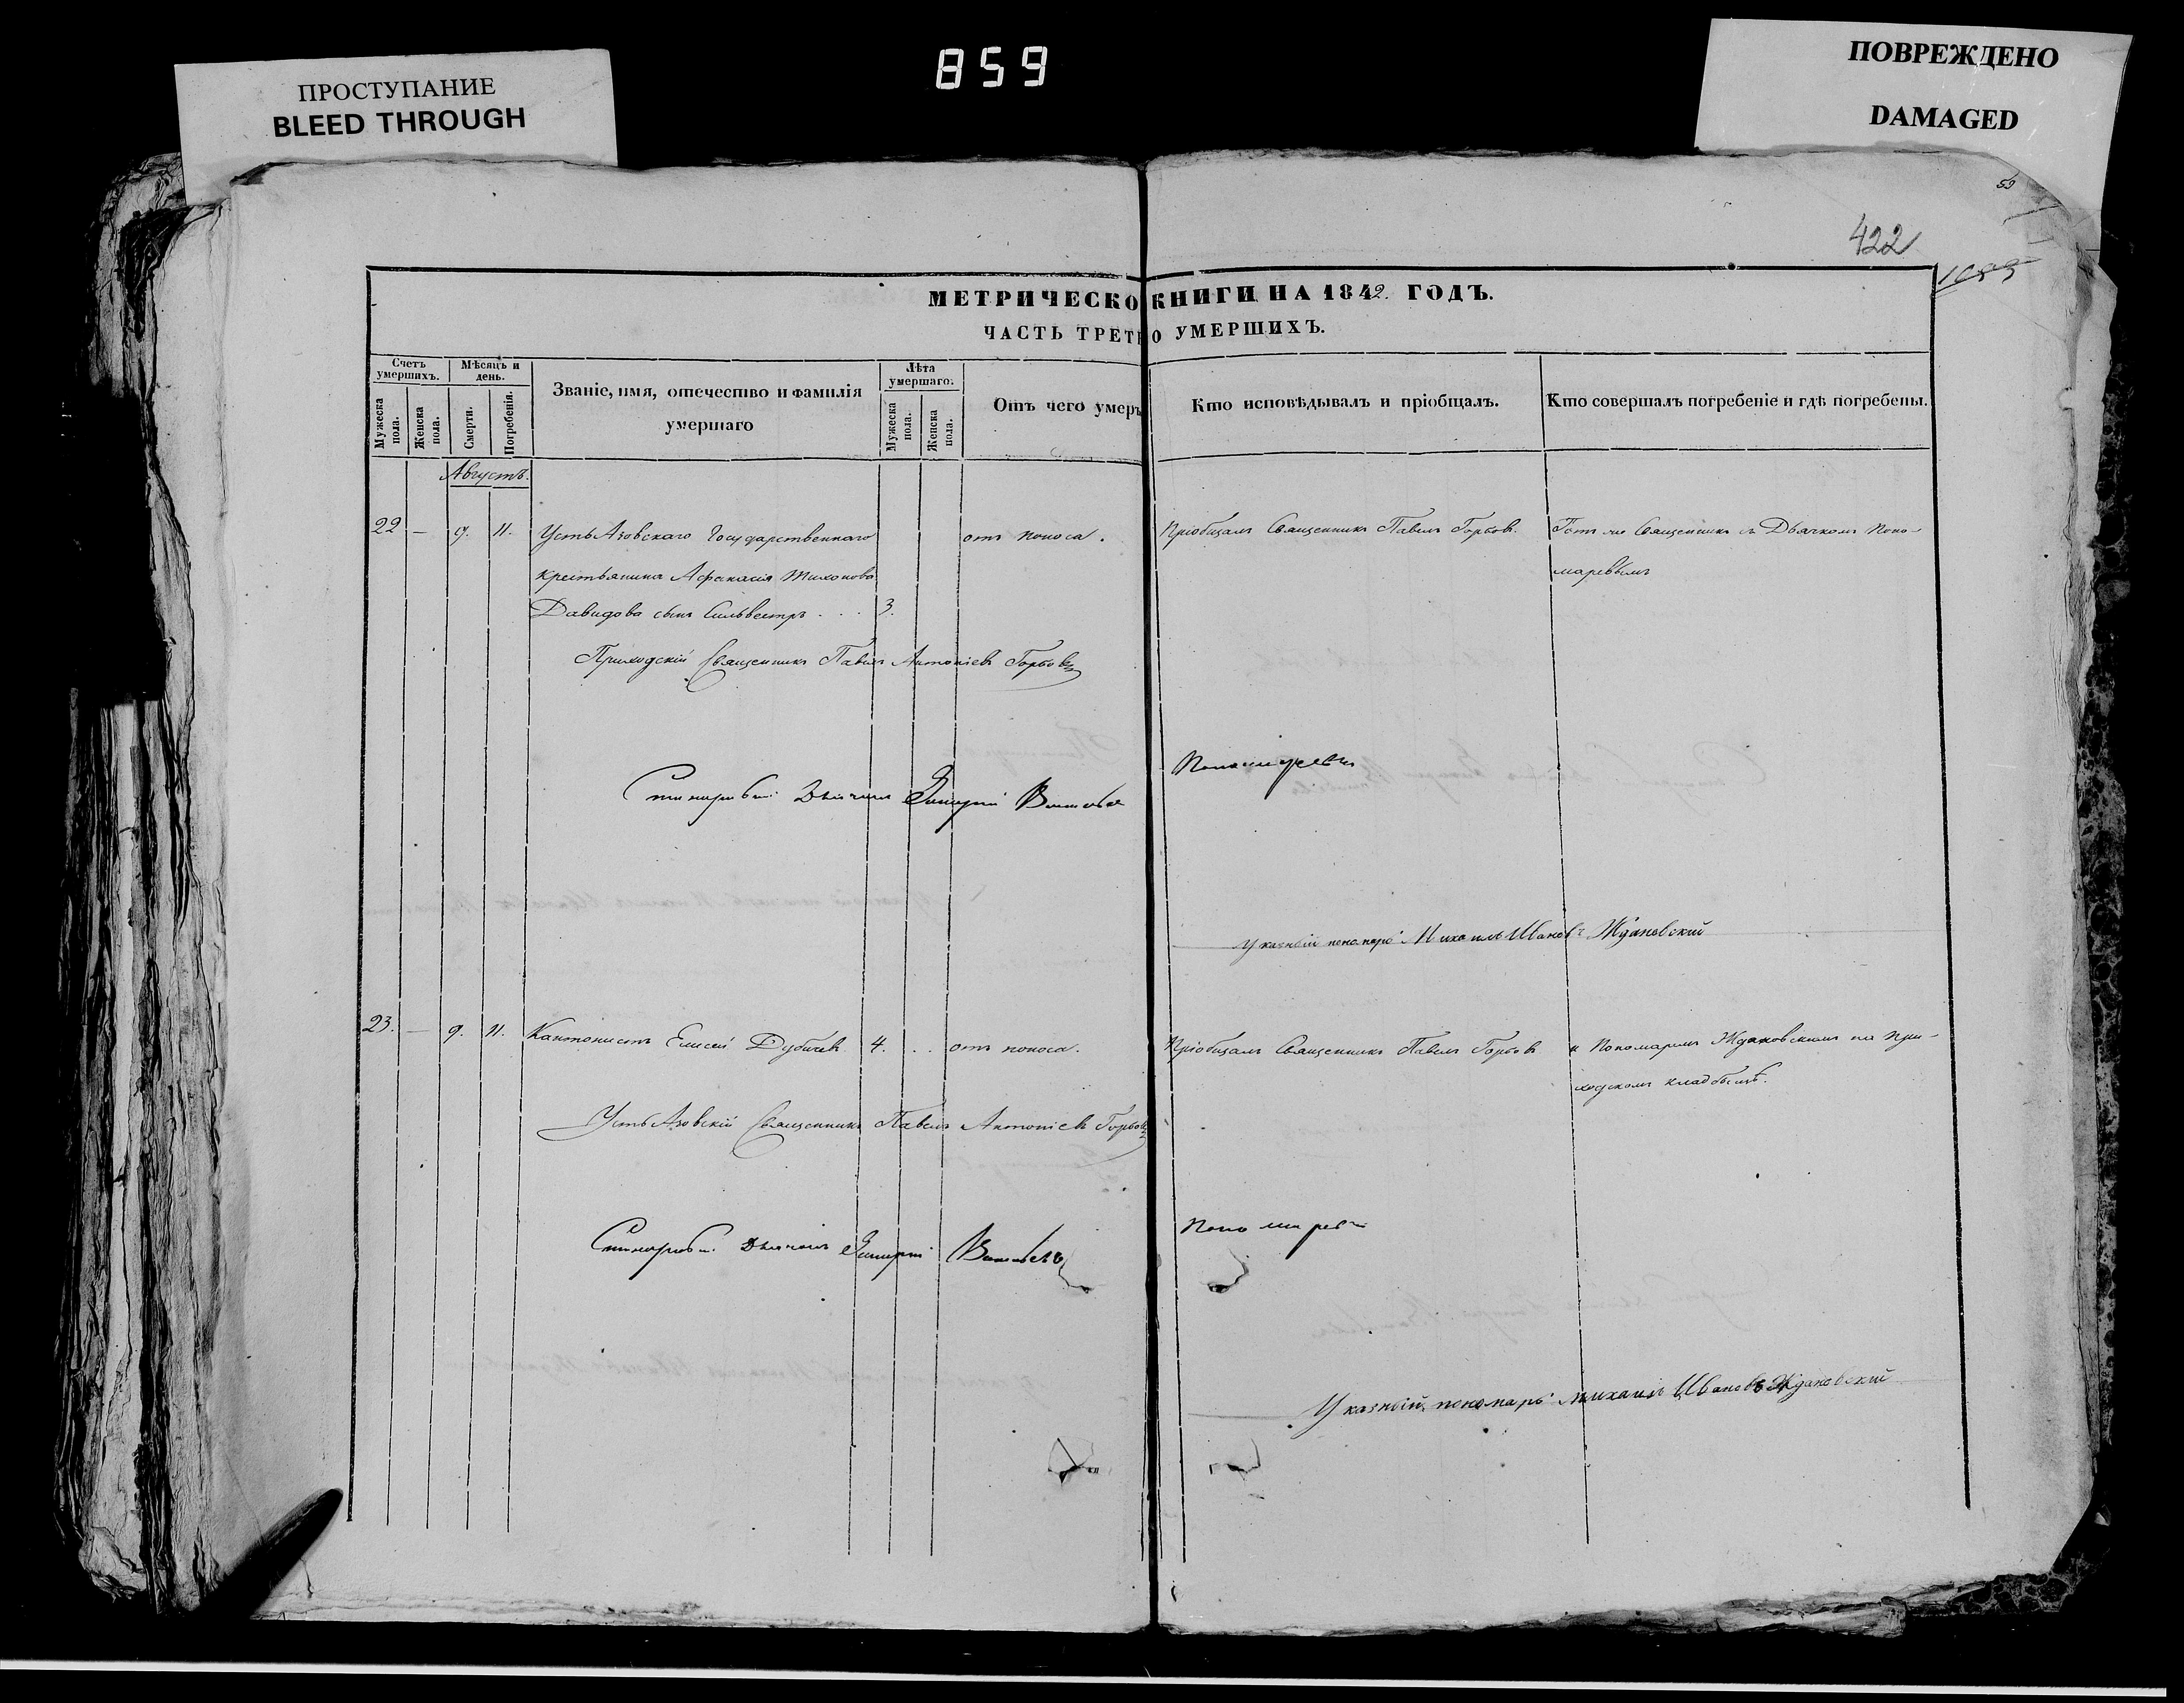 859
ПРОСТУПАНИЕ
BLEED THROUGH
ПОВРЕЖДЕНО
DAMAGED
59
422
МЕТРИЧЕСКО КНИГИ НА 1842. ГОДЪ.
ЧАСТЬ ТРЕТ О УМЕРШИХЪ.
Счетъ умершихъ.
Мѣсяцъ и день.
Званіе, имя, отечество и фамилія умершаго
Лѣта умершаго.
Отъ чего умеръ
Кто исповѣдывалъ и пріобщалъ.
Кто совершалъ погребеніе и гдѣ погребены.
Мужеска пола.
Женска пола.
Смерти.
Погребенія.
Мужеска пола.
Женска пола.
Августъ.
22 — 9. 11. Усть Азовскаго Государственнаго отъ поноса. Пріобщалъ Священникъ Павелъ Горбов. Тотъ же Священникъ съ Дьячкомъ Поно-
крестьянина Афанасія Тихонова маревымъ
Давидова сынъ Сильвестръ . . . 3.
Приходскій Священникъ Павелъ Антоніевъ Горбовъ
Дьячекъ Димитрій Пономаревъ
Указный пономарь Михаилъ Ивановъ Ждановскій
23. — 9. 11. Кантонистъ Елисей Дубичев 4. . . отъ поноса. Пріобщалъ Священникъ Павелъ Горбов и Пономаремъ Ждановскимъ на при-
ходскомъ кладбищѣ.
Усть Азовскій Священникъ Павелъ Антоніевъ Горбовъ
Дьячекъ Димитрій Пономаревъ
Указный пономарь Михаилъ Ивановъ Ждановскій